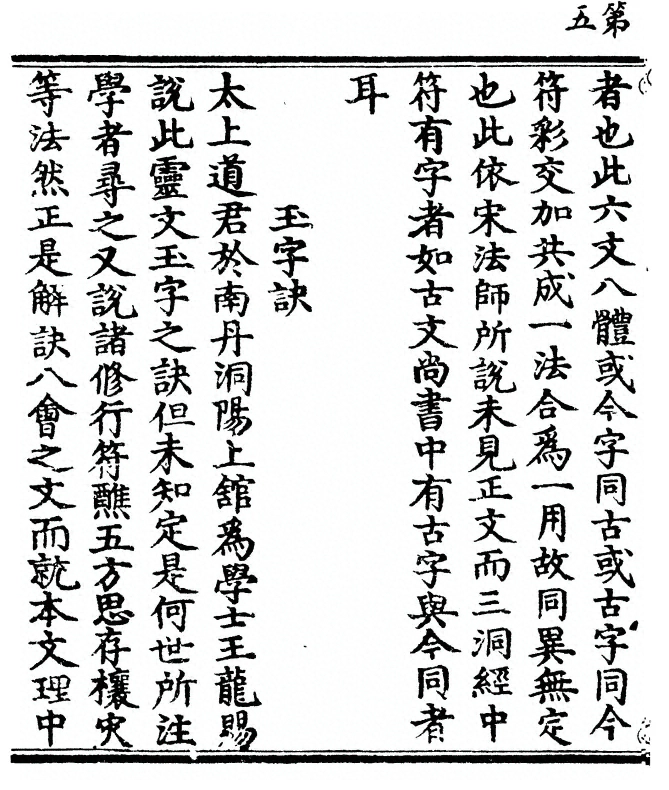 第五
者也此六文八體或今字同古或古字同今
符彩交加共成一法合爲一用故同異無定
也此依宋法師所說未見正文而三洞經中
符有字者如古文尚書中有古字與今同者
耳
玉字訣
太上道君於南丹洞陽上舘爲學士王龍賜
說此靈文玉字之訣但未知定是何世所注
學者尋之又說諸修行符醮五方思存禳灾
等法然正是解訣八會之文而就本文理中